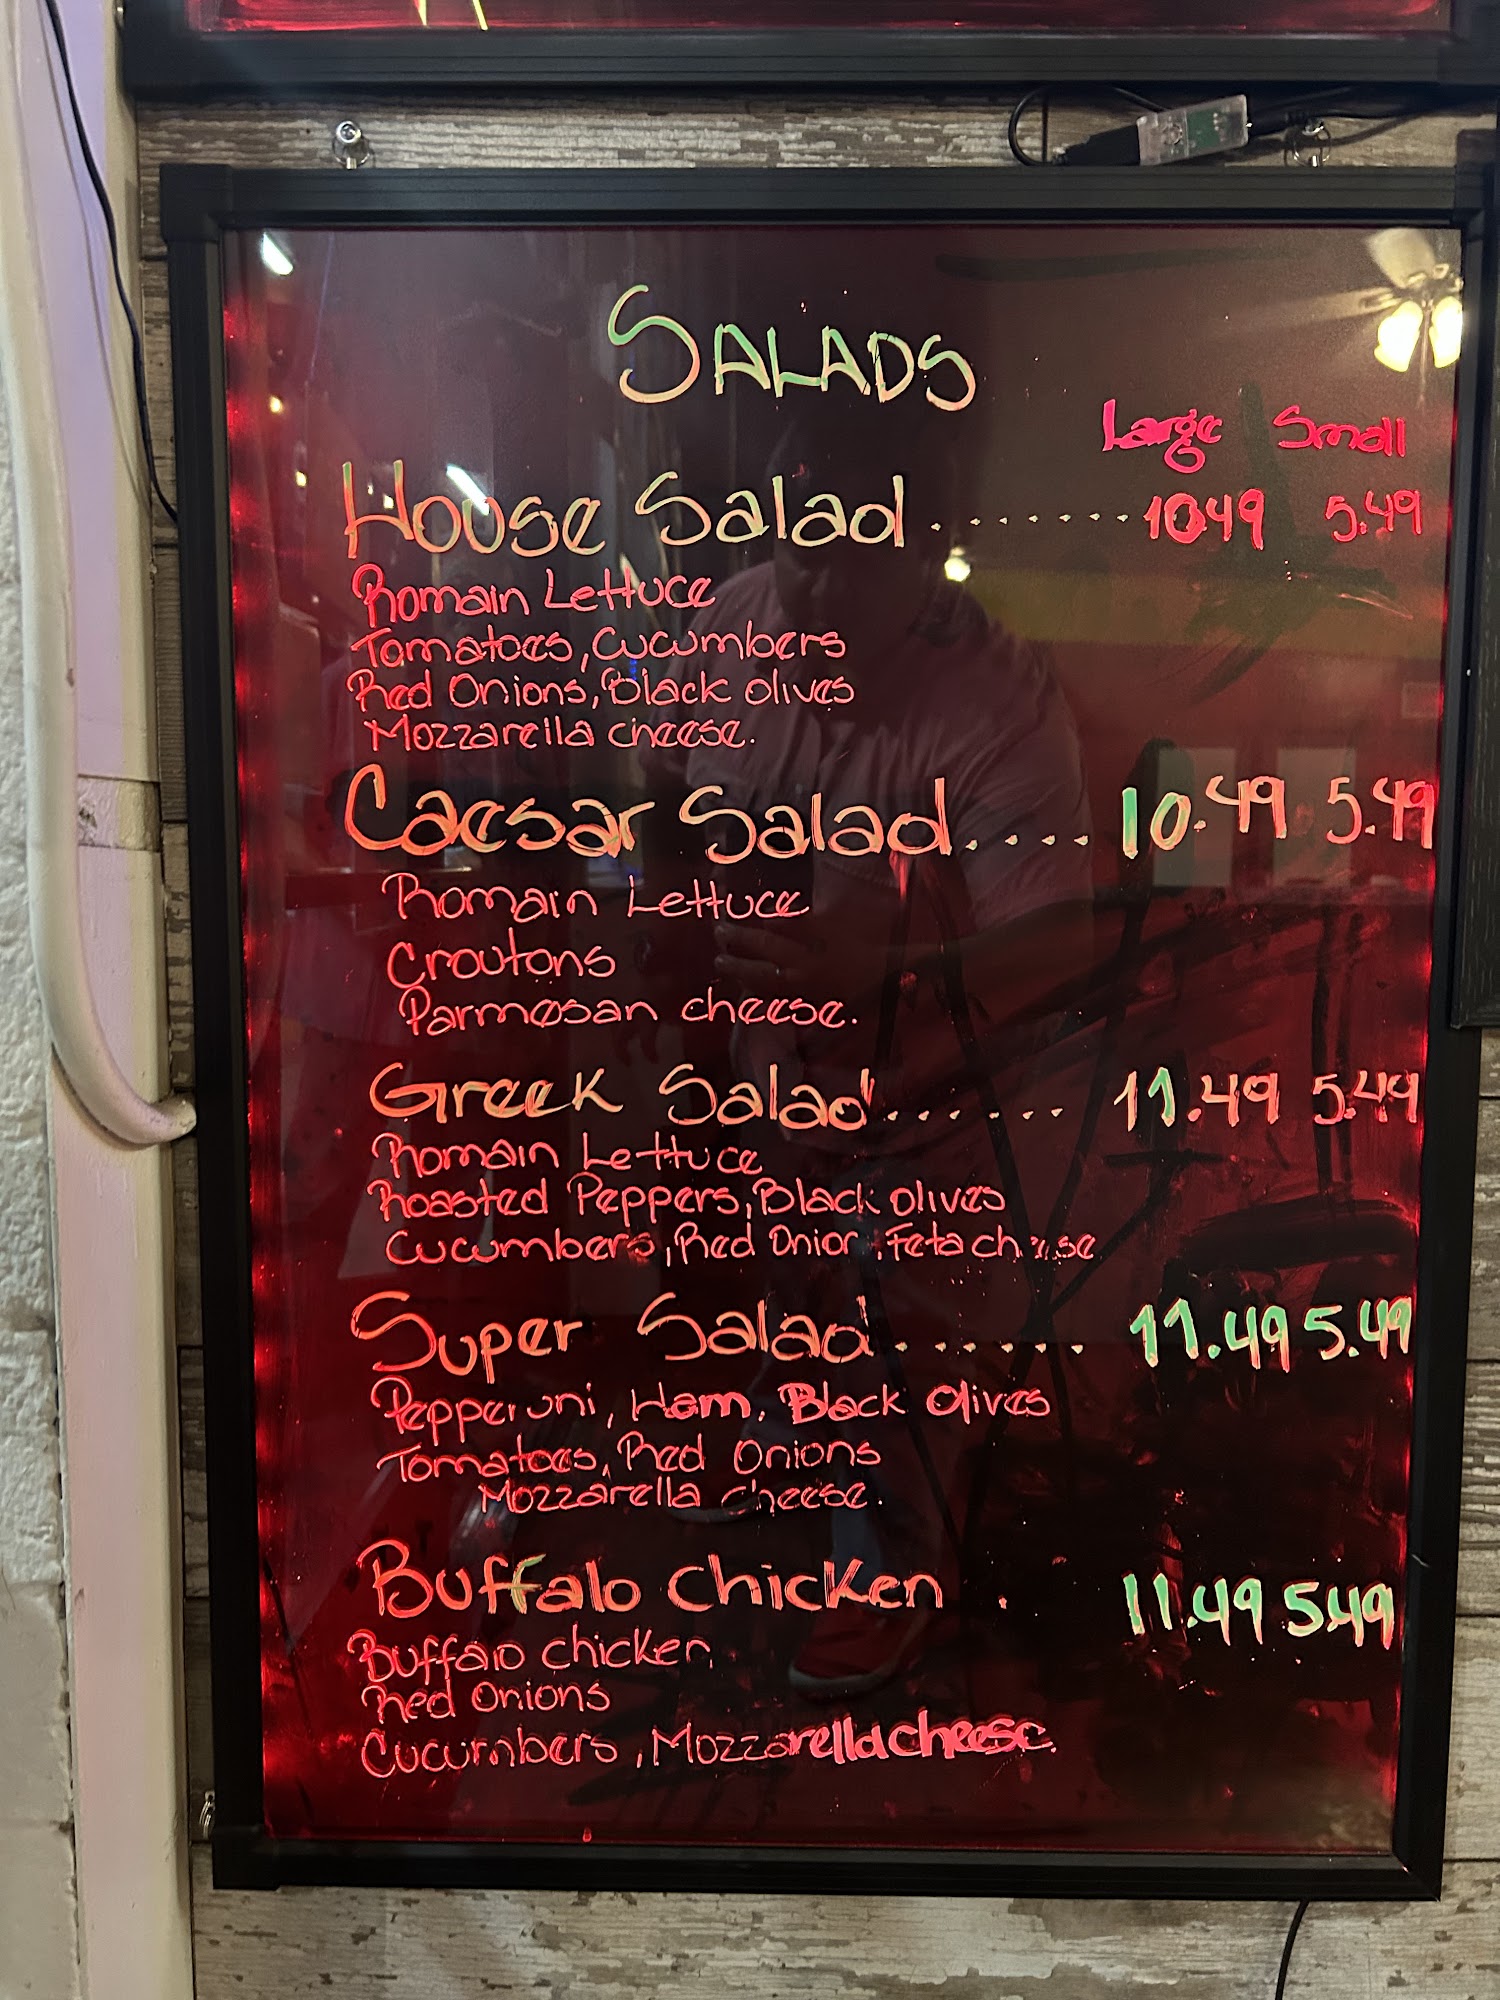 SALADS
Large Small
House Salad ........ 10.49 5.49
Romain Lettuce
Tomatoes, Cucumbers
Red Onions, Black olives
Mozzarella cheese.
Caesar Salad .... 10.49 5.49
Romain Lettuce
Croutons
Parmesan cheese.
Greek Salad ...... 11.49 5.49
Romain Lettuce
Roasted Peppers, Black olives
Cucumbers, Red Onion, Feta cheese
Super Salad ...... 11.49 5.49
Pepperoni, Ham, Black Olives
Tomatoes, Red Onions
Mozzarella cheese.
Buffalo Chicken . 11.49 5.49
Buffalo chicken
Red Onions
Cucumbers, Mozzarella cheese.